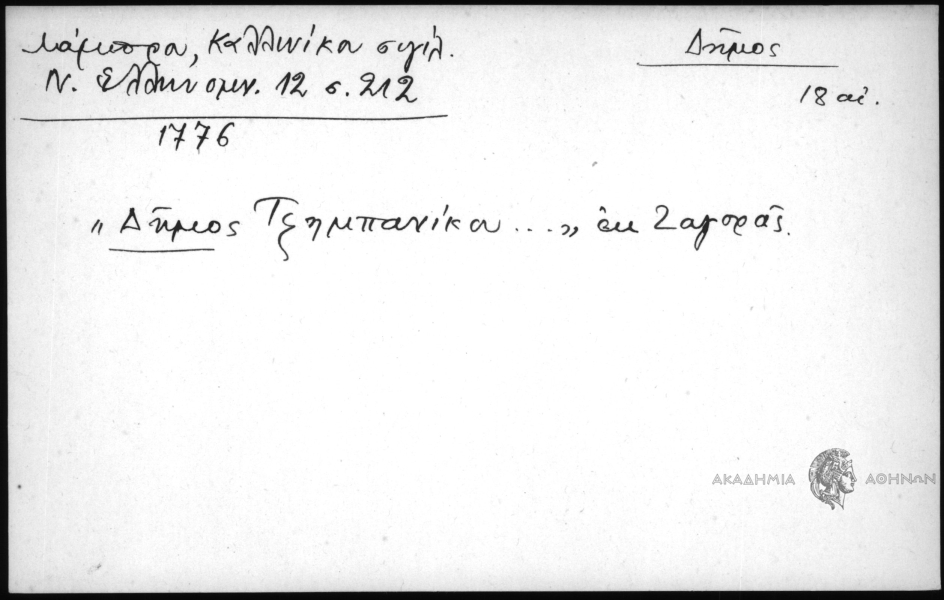 Λάμπρου, Καλλινίκου σιγίλ.
Ν. Ἑλληνομν. 12 σ. 212
1776
Δῆμος
18 αἰ.
„Δῆμος Τζημπανίκου ...„ ἐκ Ζαγορᾶς.
ΑΚΑΔΗΜΙΑ ΑΘΗΝΩΝ